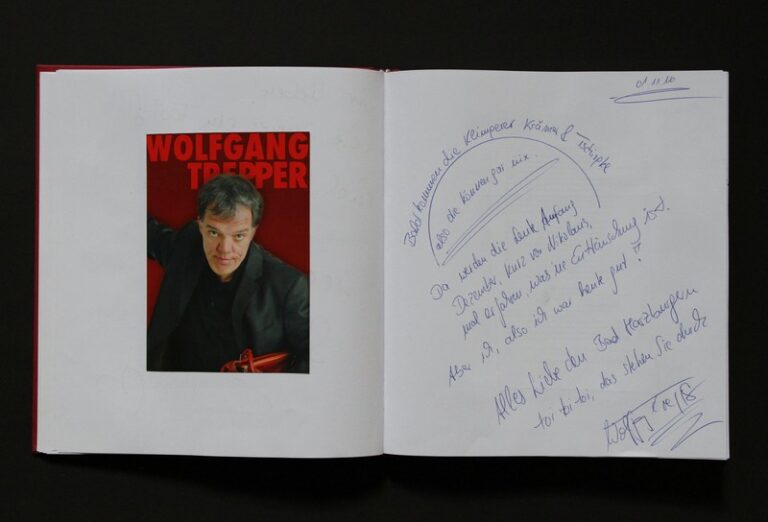 WOLFGANG
TREPPER
01.11.16
Bald kommen die Klimperer Krämer &
also die können gar nix.
Da werden die Leute Anfang
Dezember, kurz vor Nikolaus,
mal erfahren, was ne Enttäuschung ist.
Aber ich, also ich war heute gut!
Alles Liebe den Bad Harzburgern
toi-toi-toi, das stehen Sie durch